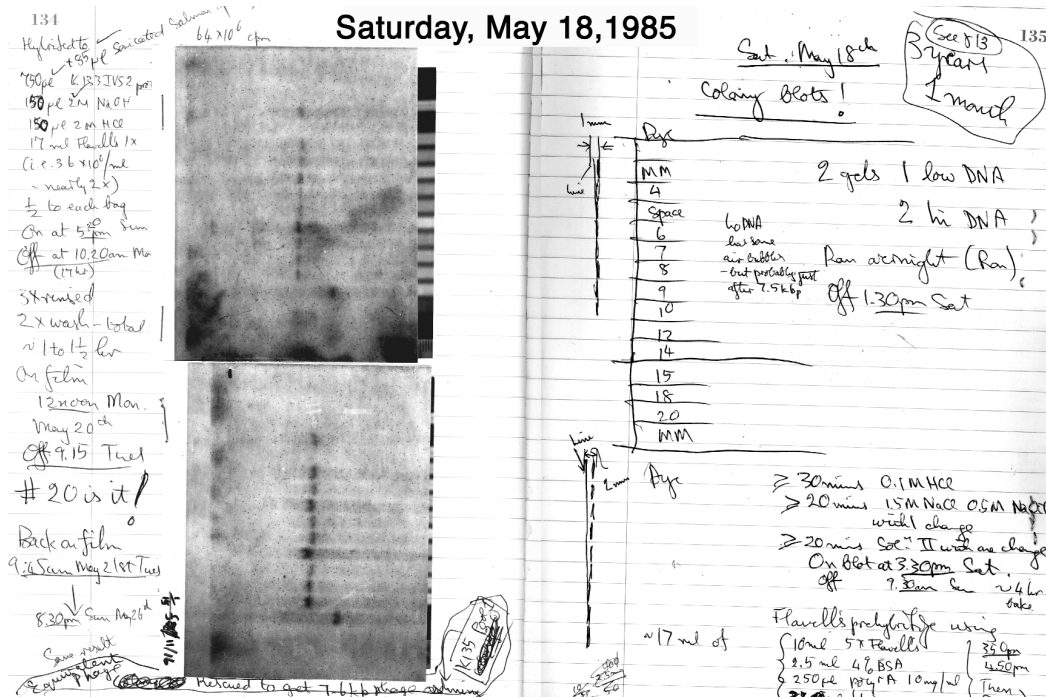 Saturday, May 18, 1985
134
64 x 10⁶ cpm
Hybridised to
+95µl Sonicated Salmon
750µl K133IVS2
150µl 2M NaOH
150µl 2M HCl
17 ml Flavells 1x
(i.e. 3.6 x 10⁶/ml
~ nearly 2x)
½ to each bag
On at 5.20pm Sun
Off at 10.20am Mon
(17 hr)
3x rinsed
2x wash - total
~ 1 to 1½ hr
On film
12 noon Mon.
May 20th
Off 9.15 Tues
# 20 is it!
Back on film
9.45am May 21st Tues
8.30pm Sun May 26th
Same result
Equivalent
phage
Rescued to get 7.6 kb phage
K135
135
See p13
3 years
1 month
Sat. May 18th
Colony Blots!
1mm
line
Dye
MM
4
Space
6
7
8
9
10
12
14
15
18
20
MM
Dye
line
2mm
2 gels 1 low DNA
2 hi DNA
lo DNA
has some
air bubbles
- but probably just
after 7.5 kbp
Ran overnight (Ron)
Off 1.30pm Sat
≥ 30 mins 0.1M HCl
≥ 20 mins 1.5M NaCl 0.5M NaOH
with 1 change
≥ 20 mins Solⁿ II with one change
On Blot at 3.30pm Sat
off 9.30am Sun ~ 4 hr
bake
Flavell's prehybridize using
~17 ml of
10ml 5x Flavells
2.5 ml 4% BSA
250µl polyrA 10mg/ml
3.50pm
4.50pm
Then